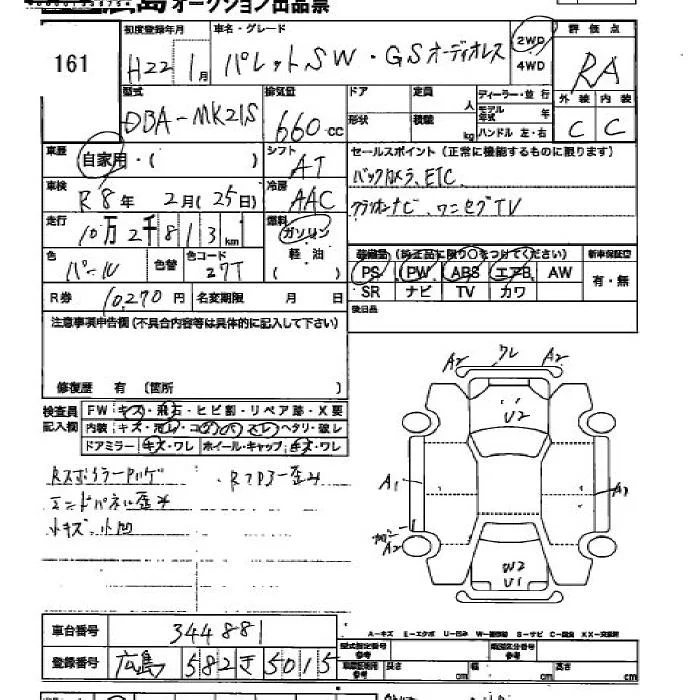 広島 オークション出品票
161
初度登録年月
H22 1月
車名・グレード
パレットSW・GSオーディオレス
2WD
4WD
評価点
RA
型式
DBA-MK21S
排気量
660cc
ドア
形状
定員
人
積載
kg
ディーラー・並行
モデル年式 年
ハンドル 左・右
外装 内装
C C
車歴
自家用・( )
シフト
AT
セールスポイント (正常に機能するものに限ります)
バックカメラ、ETC
クラリオンナビ、ワンセグTV
車検
R8年 2月(25日)
冷房
AAC
走行
10万2千813km
燃料
ガソリン
軽油
( )
装備量 (純正品に限り○をつけてください)
新車保証空
PS PW ABS エアB AW
有・無
SR ナビ TV カワ
色
パール
色替
色コード
27T
R券 10,270円
名変期限 月 日
後日品
注意事項申告欄(不具合内容等は具体的に記入して下さい)
修復歴 有 〔箇所 〕
検査員
記入欄
FW キズ・飛石・ヒビ割・リペア跡・X要
内装 キズ・汚レ・コゲ・スレ・ヘタリ・破レ
ドアミラー キズ・ワレ ホイール・キャップ キズ・ワレ
エンドパネル歪み
小キズ・小凹
A2 ワレ A2
U2
A1
A2
W2
U1
A-キズ E-エクボ U-凹み W-補修跡 S-サビ C-腐食 XX-交換済
車台番号 344881
登録番号 広島 582 き 5015
型式指定番号
参考
類別区分番号
参考
長さ cm 幅 cm 高さ cm